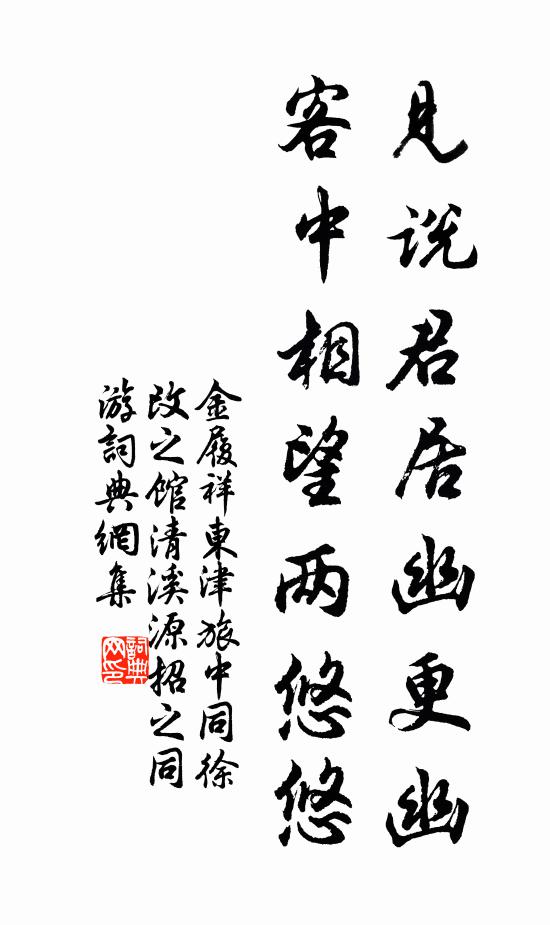 見説君居幽更幽
客中相望两悠悠
金履祥東津旅中同徐
改之館清溪源招之同
游詞典網集
詞典
网印